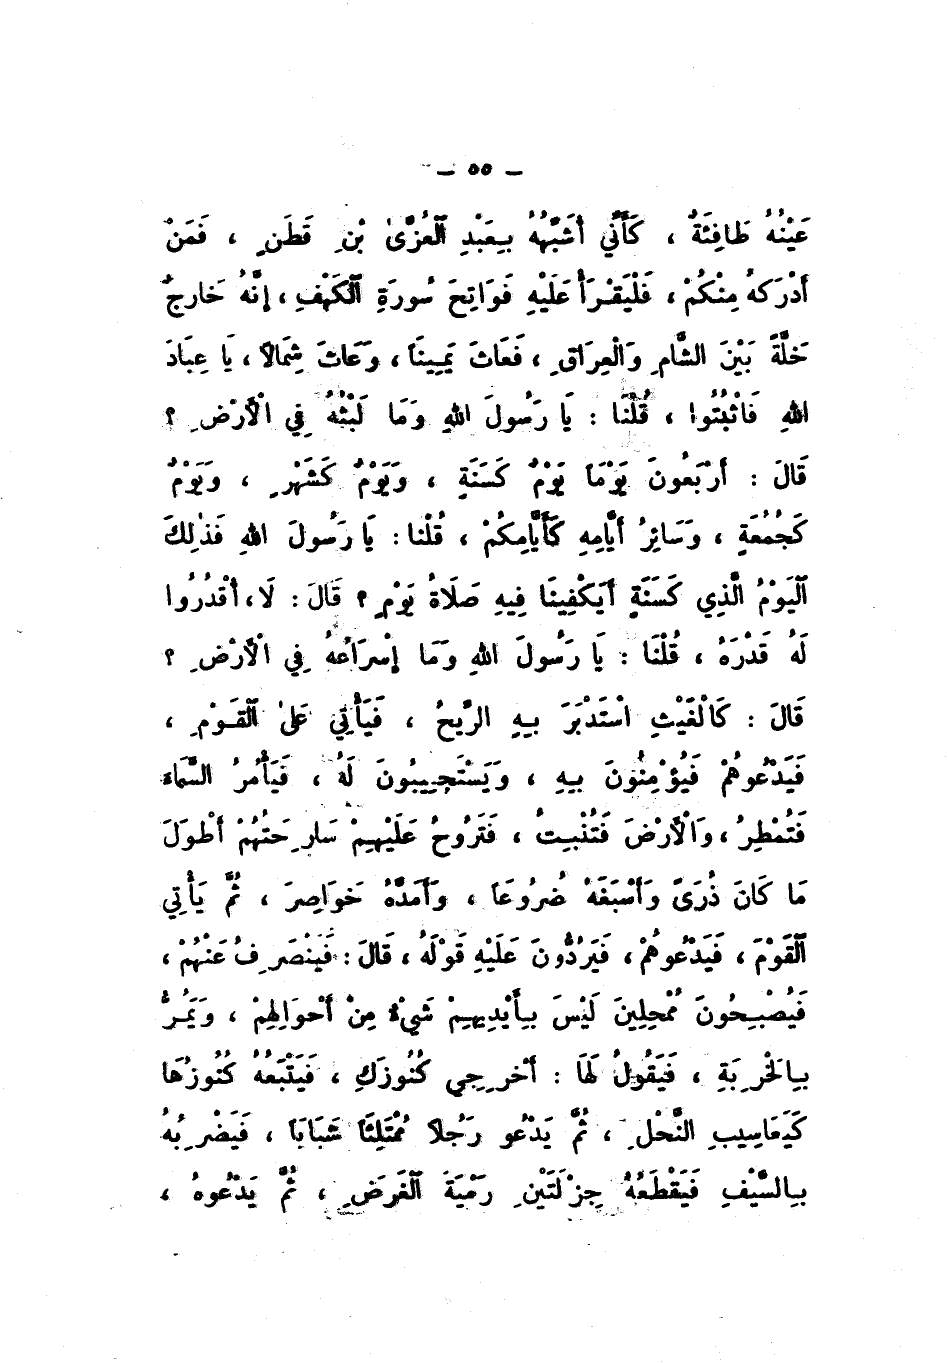 — ٥٥ —
عَيْنُهُ طَافِئَةٌ ، كَأَنِّي أُشَبِّهُهُ بِعَبْدِ ٱلْعُزَّىٰ بْنِ قَطَنٍ ، فَمَنْ
أَدْرَكَهُ مِنْكُمْ ، فَلْيَقْرَأْ عَلَيْهِ فَوَاتِحَ سُورَةِ ٱلْكَهْفِ ، إِنَّهُ خَارِجٌ
خَلَّةً بَيْنَ الشَّامِ وَالْعِرَاقِ ، فَعَاثَ يَمِينًا ، وَعَاثَ شِمَالًا ، يَا عِبَادَ
اللهِ فَاثْبُتُوا ، قُلْنَا : يَا رَسُولَ اللهِ وَمَا لَبْثُهُ فِي الْأَرْضِ ؟
قَالَ : أَرْبَعُونَ يَوْمًا يَوْمٌ كَسَنَةٍ ، وَيَوْمٌ كَشَهْرٍ ، وَيَوْمٌ
كَجُمُعَةٍ ، وَسَائِرُ أَيَّامِهِ كَأَيَّامِكُمْ ، قُلْنَا : يَا رَسُولَ اللهِ فَذٰلِكَ
ٱلْيَوْمُ الَّذِي كَسَنَةٍ أَيَكْفِينَا فِيهِ صَلَاةُ يَوْمٍ ؟ قَالَ : لَا ، أُقْدُرُوا
لَهُ قَدْرَهُ ، قُلْنَا : يَا رَسُولَ اللهِ وَمَا إِسْرَاعُهُ فِي الْأَرْضِ ؟
قَالَ : كَالْغَيْثِ اسْتَدْبَرَ بِهِ الرِّيحُ ، فَيَأْتِي عَلَىٰ ٱلْقَوْمِ ،
فَيَدْعُوهُمْ فَيُؤْمِنُونَ بِهِ ، وَيَسْتَجِيبُونَ لَهُ ، فَيَأْمُرُ السَّمَاءَ
فَتُمْطِرُ ، وَالْأَرْضَ فَتُنْبِتُ ، فَتَرُوحُ عَلَيْهِمْ سَارِحَتُهُمْ أَطْوَلَ
مَا كَانَ ذُرَىً وَأَسْبَغَهُ ضُرُوعًا ، وَأَمَدَّهُ خَوَاصِرَ ، ثُمَّ يَأْتِي
ٱلْقَوْمَ ، فَيَدْعُوهُمْ ، فَيَرُدُّونَ عَلَيْهِ قَوْلَهُ ، قَالَ : فَيَنْصَرِفُ عَنْهُمْ ،
فَيُصْبِحُونَ مُمْحِلِينَ لَيْسَ بِأَيْدِيهِمْ شَيْءٌ مِنْ أَحْوَالِهِمْ ، وَيَمُرُّ
بِالْخَرِبَةِ ، فَيَقُولُ لَهَا : أَخْرِجِي كُنُوزَكِ ، فَيَتْبَعُهُ كُنُوزُهَا
كَيَعَاسِيبِ النَّحْلِ ، ثُمَّ يَدْعُو رَجُلًا مُمْتَلِئًا شَبَابًا ، فَيَضْرِبُهُ
بِالسَّيْفِ فَيَقْطَعُهُ جِزْلَتَيْنِ رَمْيَةَ ٱلْغَرَضِ ، ثُمَّ يَدْعُوهُ ،